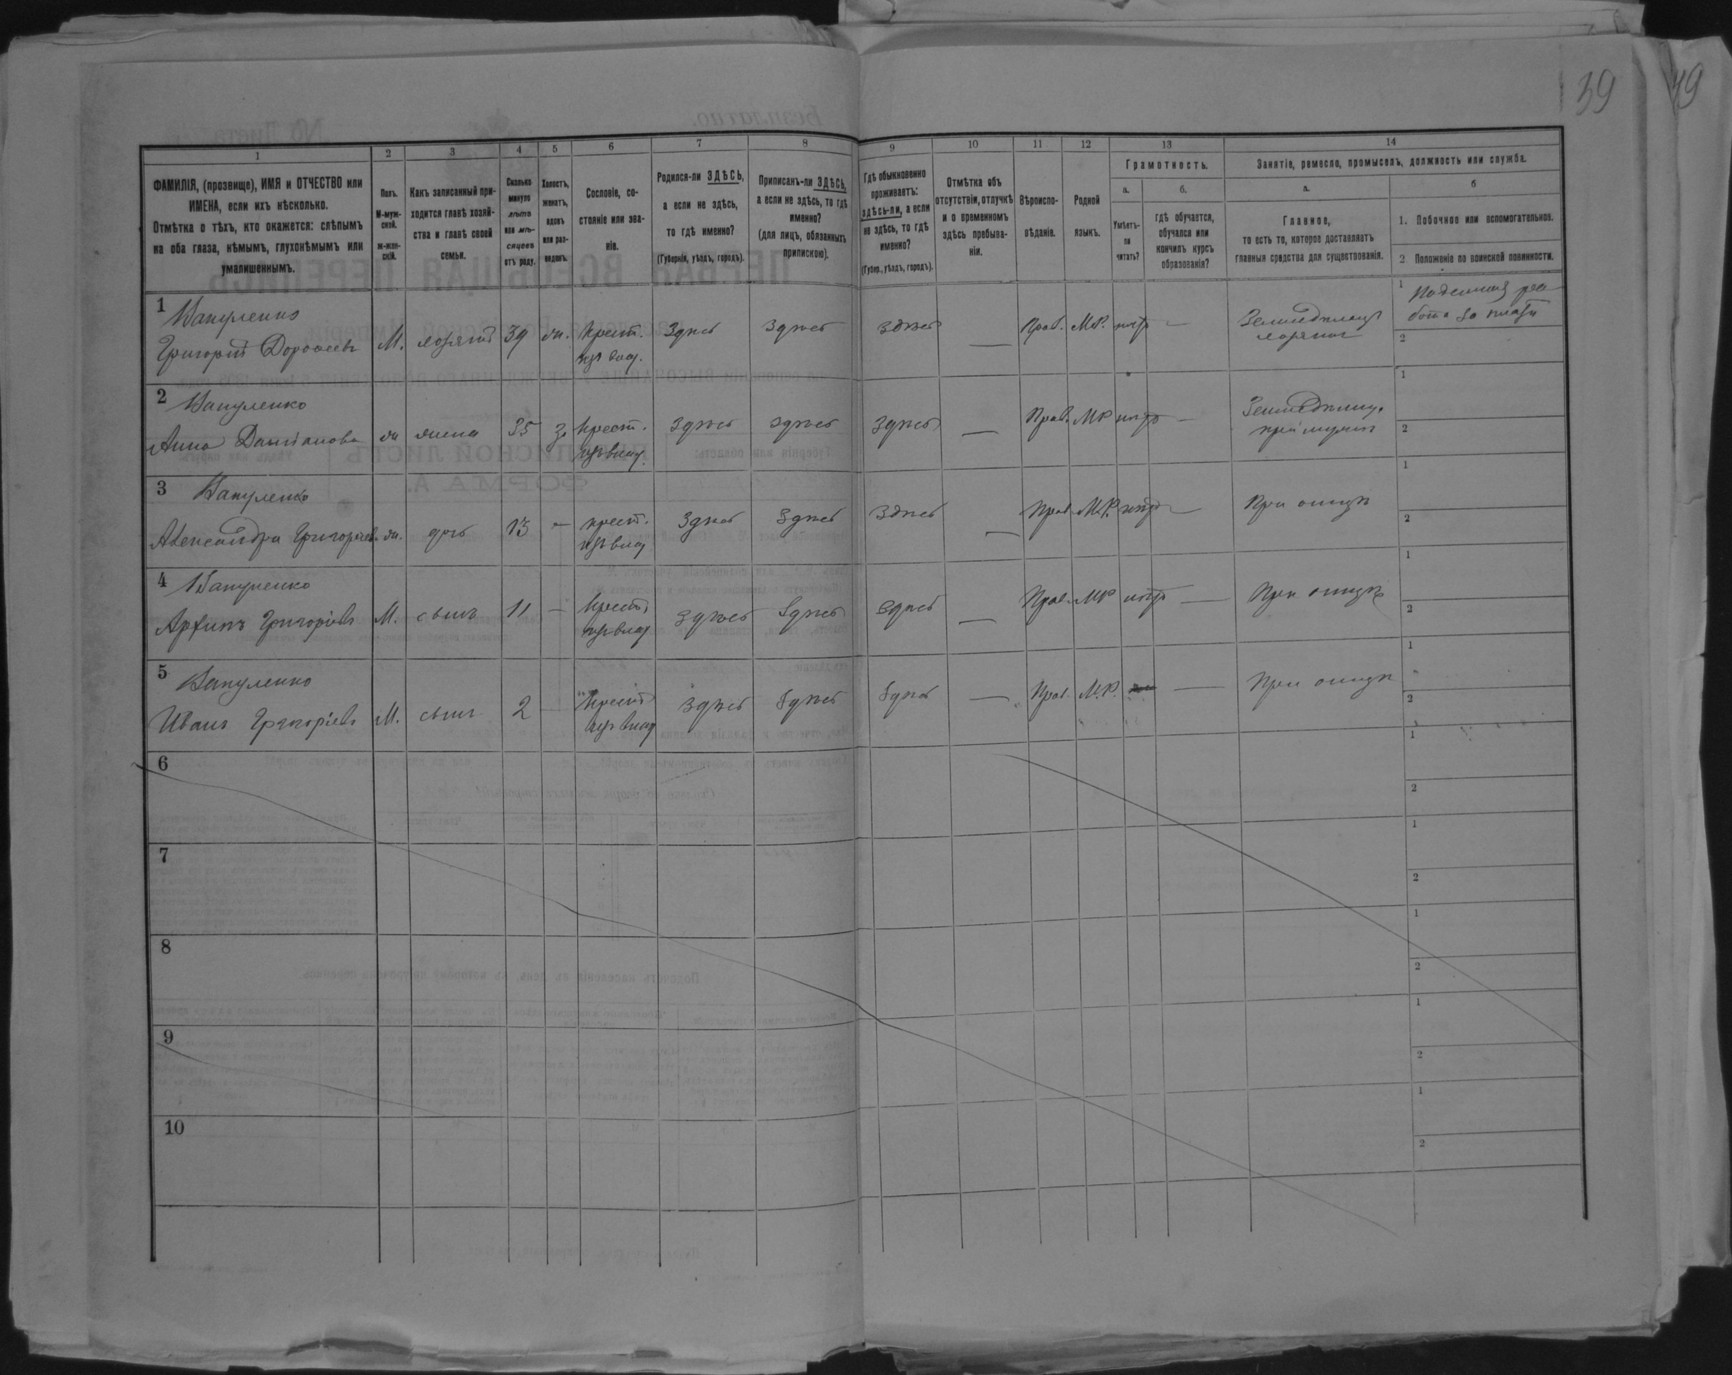 39
49
1
2
3
4
5
6
7
8
9
10
11
12
13
14
ФАМИЛІЯ, (прозвище), ИМЯ и ОТЧЕСТВО или
ИМЕНА, если ихъ нѣсколько.
Отмѣтка о тѣхъ, кто окажется: слѣпымъ
на оба глаза, нѣмымъ, глухонѣмымъ или
умалишеннымъ.
Полъ.
М-муж-
ской.
ж-жен-
скій.
Какъ записанный при-
ходится главѣ хозяй-
ства и главѣ своей
семьи.
Сколько
минуло
лѣтъ
или мѣ-
сяцевъ
отъ роду.
Холостъ,
женатъ,
вдовъ
или раз-
веденъ.
Сословіе, со-
стояніе или зва-
ніе.
Родился-ли ЗДѢСЬ,
а если не здѣсь,
то гдѣ именно?
(Губернія, уѣздъ, городъ).
Приписанъ-ли ЗДѢСЬ,
а если не здѣсь, то гдѣ
именно?
(для лицъ, обязанныхъ
припискою).
Гдѣ обыкновенно
проживаетъ:
здѣсь-ли, а если
не здѣсь, то гдѣ
именно?
(Губер., уѣздъ, городъ).
Отмѣтка объ
отсутствіи, отлучкѣ
и о временномъ
здѣсь пребыва-
ніи.
Вѣроиспо-
вѣданіе.
Родной
языкъ.
Грамотность.
а.
б.
Умѣетъ-
ли
читать?
гдѣ обучается,
обучался или
кончилъ курсъ
образованія?
Занятіе, ремесло, промыселъ, должность или служба.
а.
б
Главное,
то есть то, которое доставляетъ
главныя средства для существованія.
1. Побочное или вспомогательное.
2 Положеніе по воинской повинности.
1 Вакуленко
Григорій Дорофеевъ М. хозяинъ 39 ж. Крест. изъ влад. Здѣсь Здѣсь здѣсь — Прав. М.Р. нѣтъ — Земледѣлецъ хозяинъ 1 Поденная работа за плату 2
2 Вакуленко
Анна Даміанова ж жена 35 з. Крест. изъ влад. Здѣсь здѣсь здѣсь — Прав. МР нѣтъ — 1 2
3 Вакуленко
Александра Григорьев. ж. дочь 13 — крест. изъ влад Здѣсь Здѣсь Здѣсь — Прав М.Р. нѣтъ — При отцѣ 1 2
4 Вакуленко
Григоріевъ М. сынъ 11 — Крест. изъ влад. здѣсь Здѣсь здѣсь — Прав. МР нѣтъ — При отцѣ 1 2
5 Вакуленко
Иванъ Григоріевъ М. сынъ 2 — Крест. изъ влад здѣсь Здѣсь Здѣсь — Прав. М.Р. — При отцѣ 1 2
6 1 2
7 1 2
8 1 2
9 1 2
10 1 2